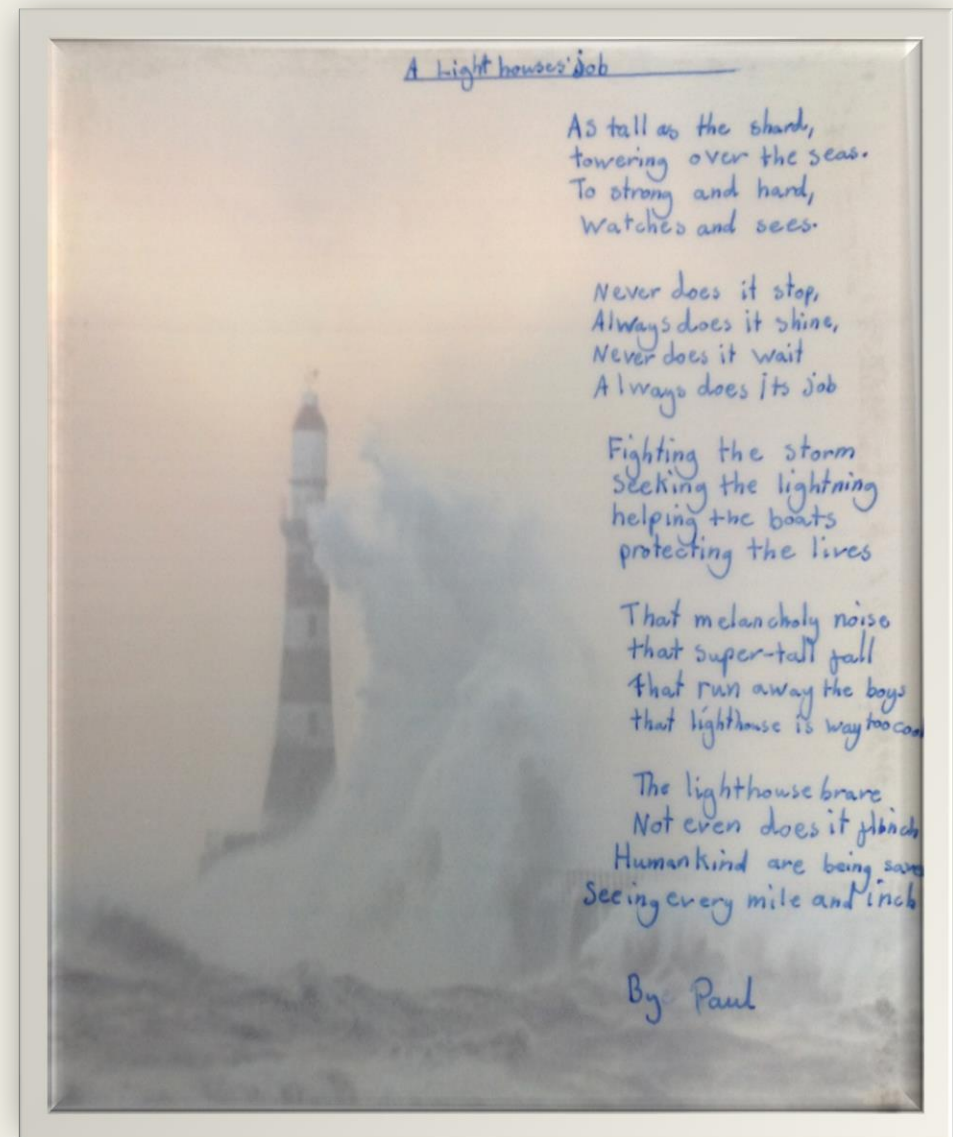 A Light houses' job
As tall as the shard,
towering over the seas.
To strong and hard,
Watches and sees.
Never does it stop,
Always does it shine,
Never does it wait
Always does its job
Fighting the storm
Seeking the lightning
helping the boats
protecting the lives
That melancholy noise
that super-tall fall
that run away the boys
that lighthouse is way too cool
The lighthouse brave
Not even does it flinch
Humankind are being
Seeing every mile and inch
By Paul